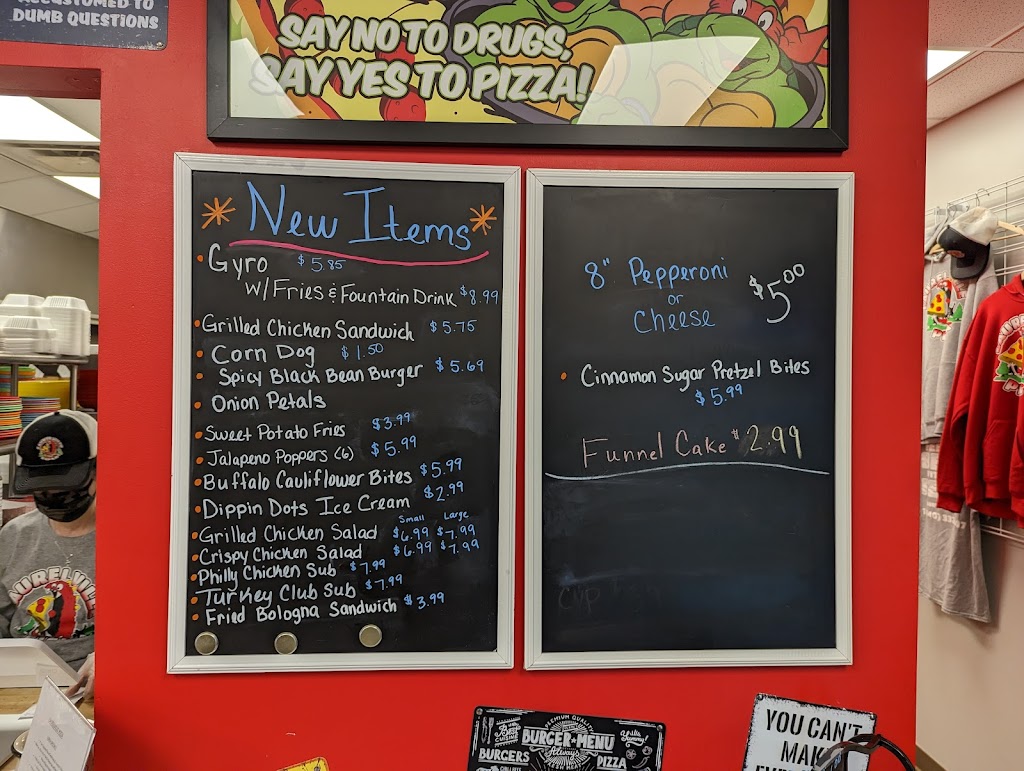 ACCUSTOMED TO
DUMB QUESTIONS
SAY NO TO DRUGS,
SAY YES TO PIZZA!
New Items
Gyro $5.85
w/ Fries & Fountain Drink $8.99
Grilled Chicken Sandwich $5.75
Corn Dog $1.50
Spicy Black Bean Burger $5.69
Onion Petals
Sweet Potato Fries $3.99
Jalapeno Poppers (6) $5.99
Buffalo Cauliflower Bites $5.99
Dippin Dots Ice Cream $2.99
Small Large
Grilled Chicken Salad $6.99 $7.99
Crispy Chicken Salad $6.99 $7.99
Philly Chicken Sub $7.99
Turkey Club Sub $7.99
Fried Bologna Sandwich $3.99
8" Pepperoni
or
Cheese
$5.00
Cinnamon Sugar Pretzel Bites
$5.99
Funnel Cake $2.99
PREMIUM QUALITY
BURGER MENU
Always
BURGERS
PIZZA
YOU CAN'T
MAKE